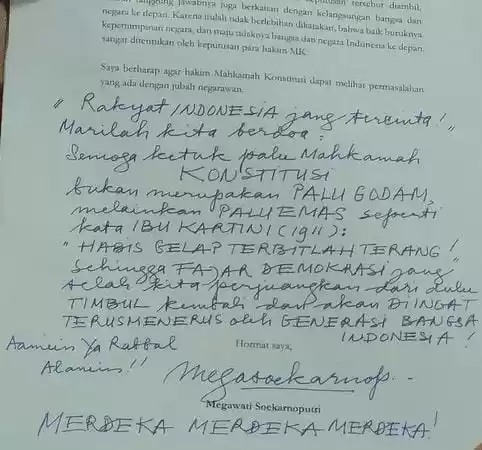 tersebut diambil,
tanggung jawabnya juga berkaitan dengan kelangsungan bangsa dan
negara ke depan. Karena itulah tidak berlebihan dikatakan, bahwa baik buruknya
kepemimpinan negara, dan maju tidaknya bangsa dan negara Indonesia ke depan,
sangat ditentukan oleh keputusan para hakim MK.
Saya berharap agar hakim Mahkamah Konstitusi dapat melihat permasalahan
yang ada dengan jubah negarawan.
" Rakyat INDONESIA jang tercinta! "
Marilah kita berdoa :
Semoga ketuk palu Mahkamah
KONSTITUSI
bukan merupakan PALU GODAM,
melainkan PALU EMAS seperti
kata IBU KARTINI (1911) :
" HABIS GELAP TERBITLAH TERANG !
Sehingga FAJAR DEMOKRASI jang "
telah kita perjuangkan dari dulu
TIMBUL kembali dan akan DIINGAT
TERUSMENERUS oleh GENERASI BANGSA
INDONESIA !
Aamiin Ya Rabbal
Alamiin !!
Hormat saya,
Megawati Soekarnoputri
MERDEKA MERDEKA MERDEKA !